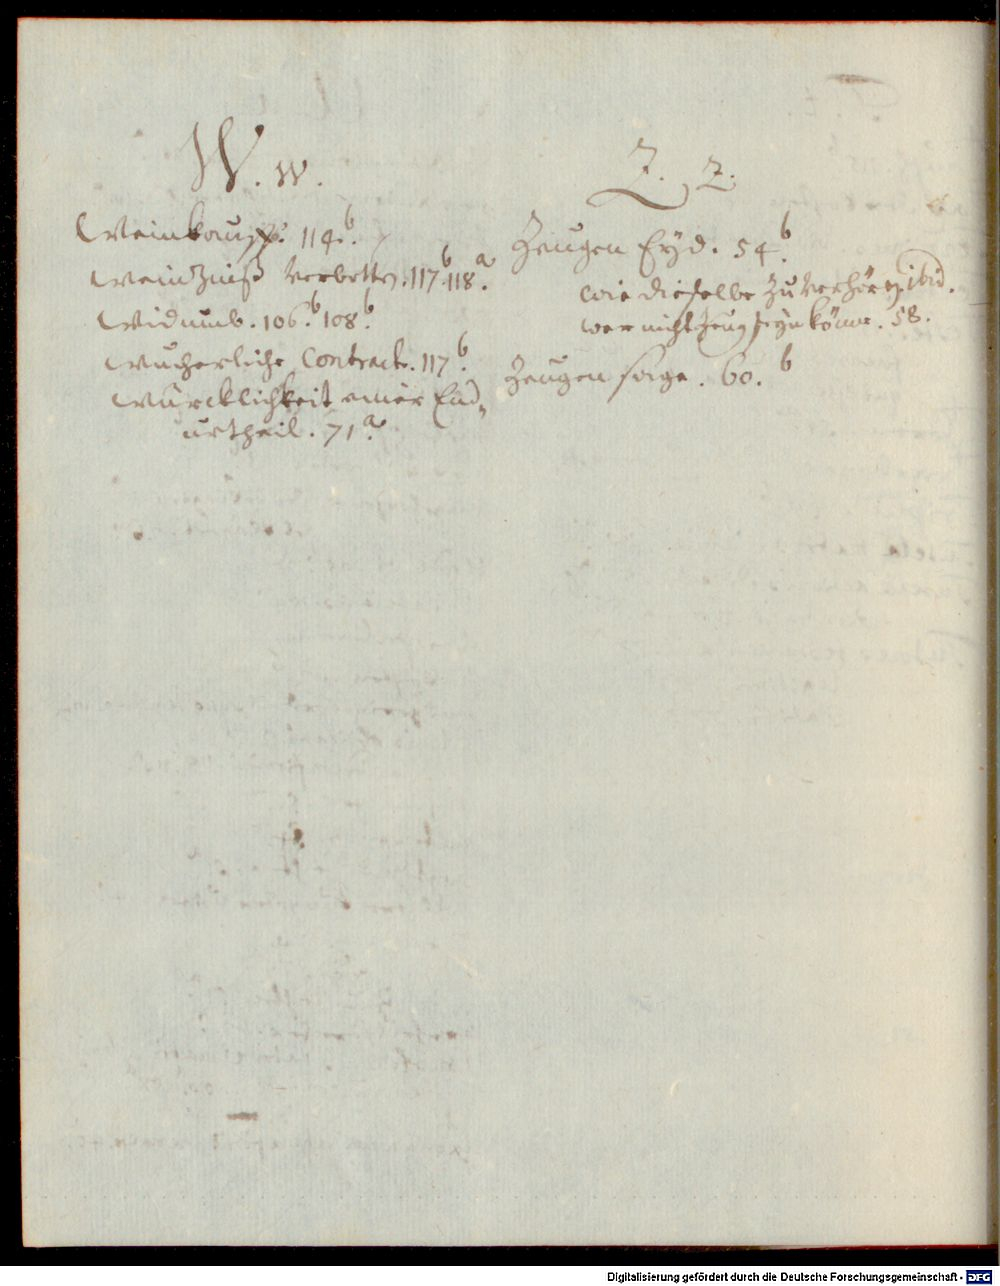 W. w.
Weinkauff. 114.b
Weinzniß Verbotten. 117.b 118.a
Widumb. 106.b 108.b
Wucherliche Contract. 117.b
Würcklichkeit einer End-
urtheil. 71.a
Z. z.
Zeugen Eyd. 54.b
wie dieselbe zu verhören ibid.
wer nicht Zeug seyn könne. 58.
Zeugen sage. 60.b
Digitalisierung gefördert durch die Deutsche Forschungsgemeinschaft - DFG